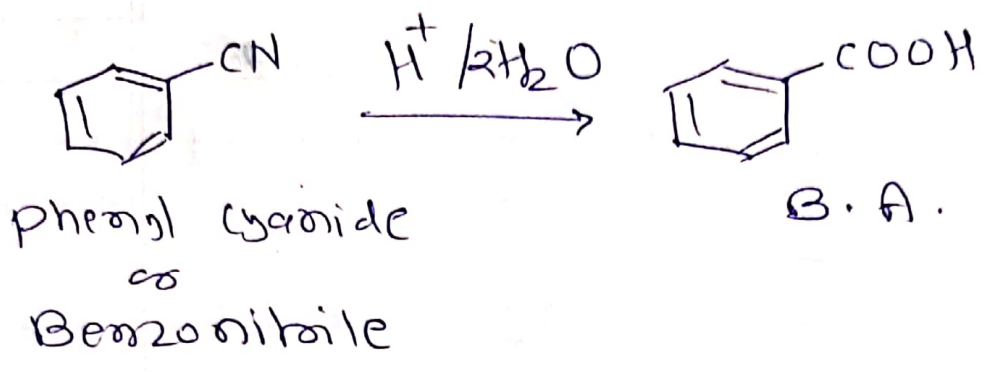 CN H⁺/2H₂O COOH
Phenyl cyanide B.A.
or
Benzonitrile